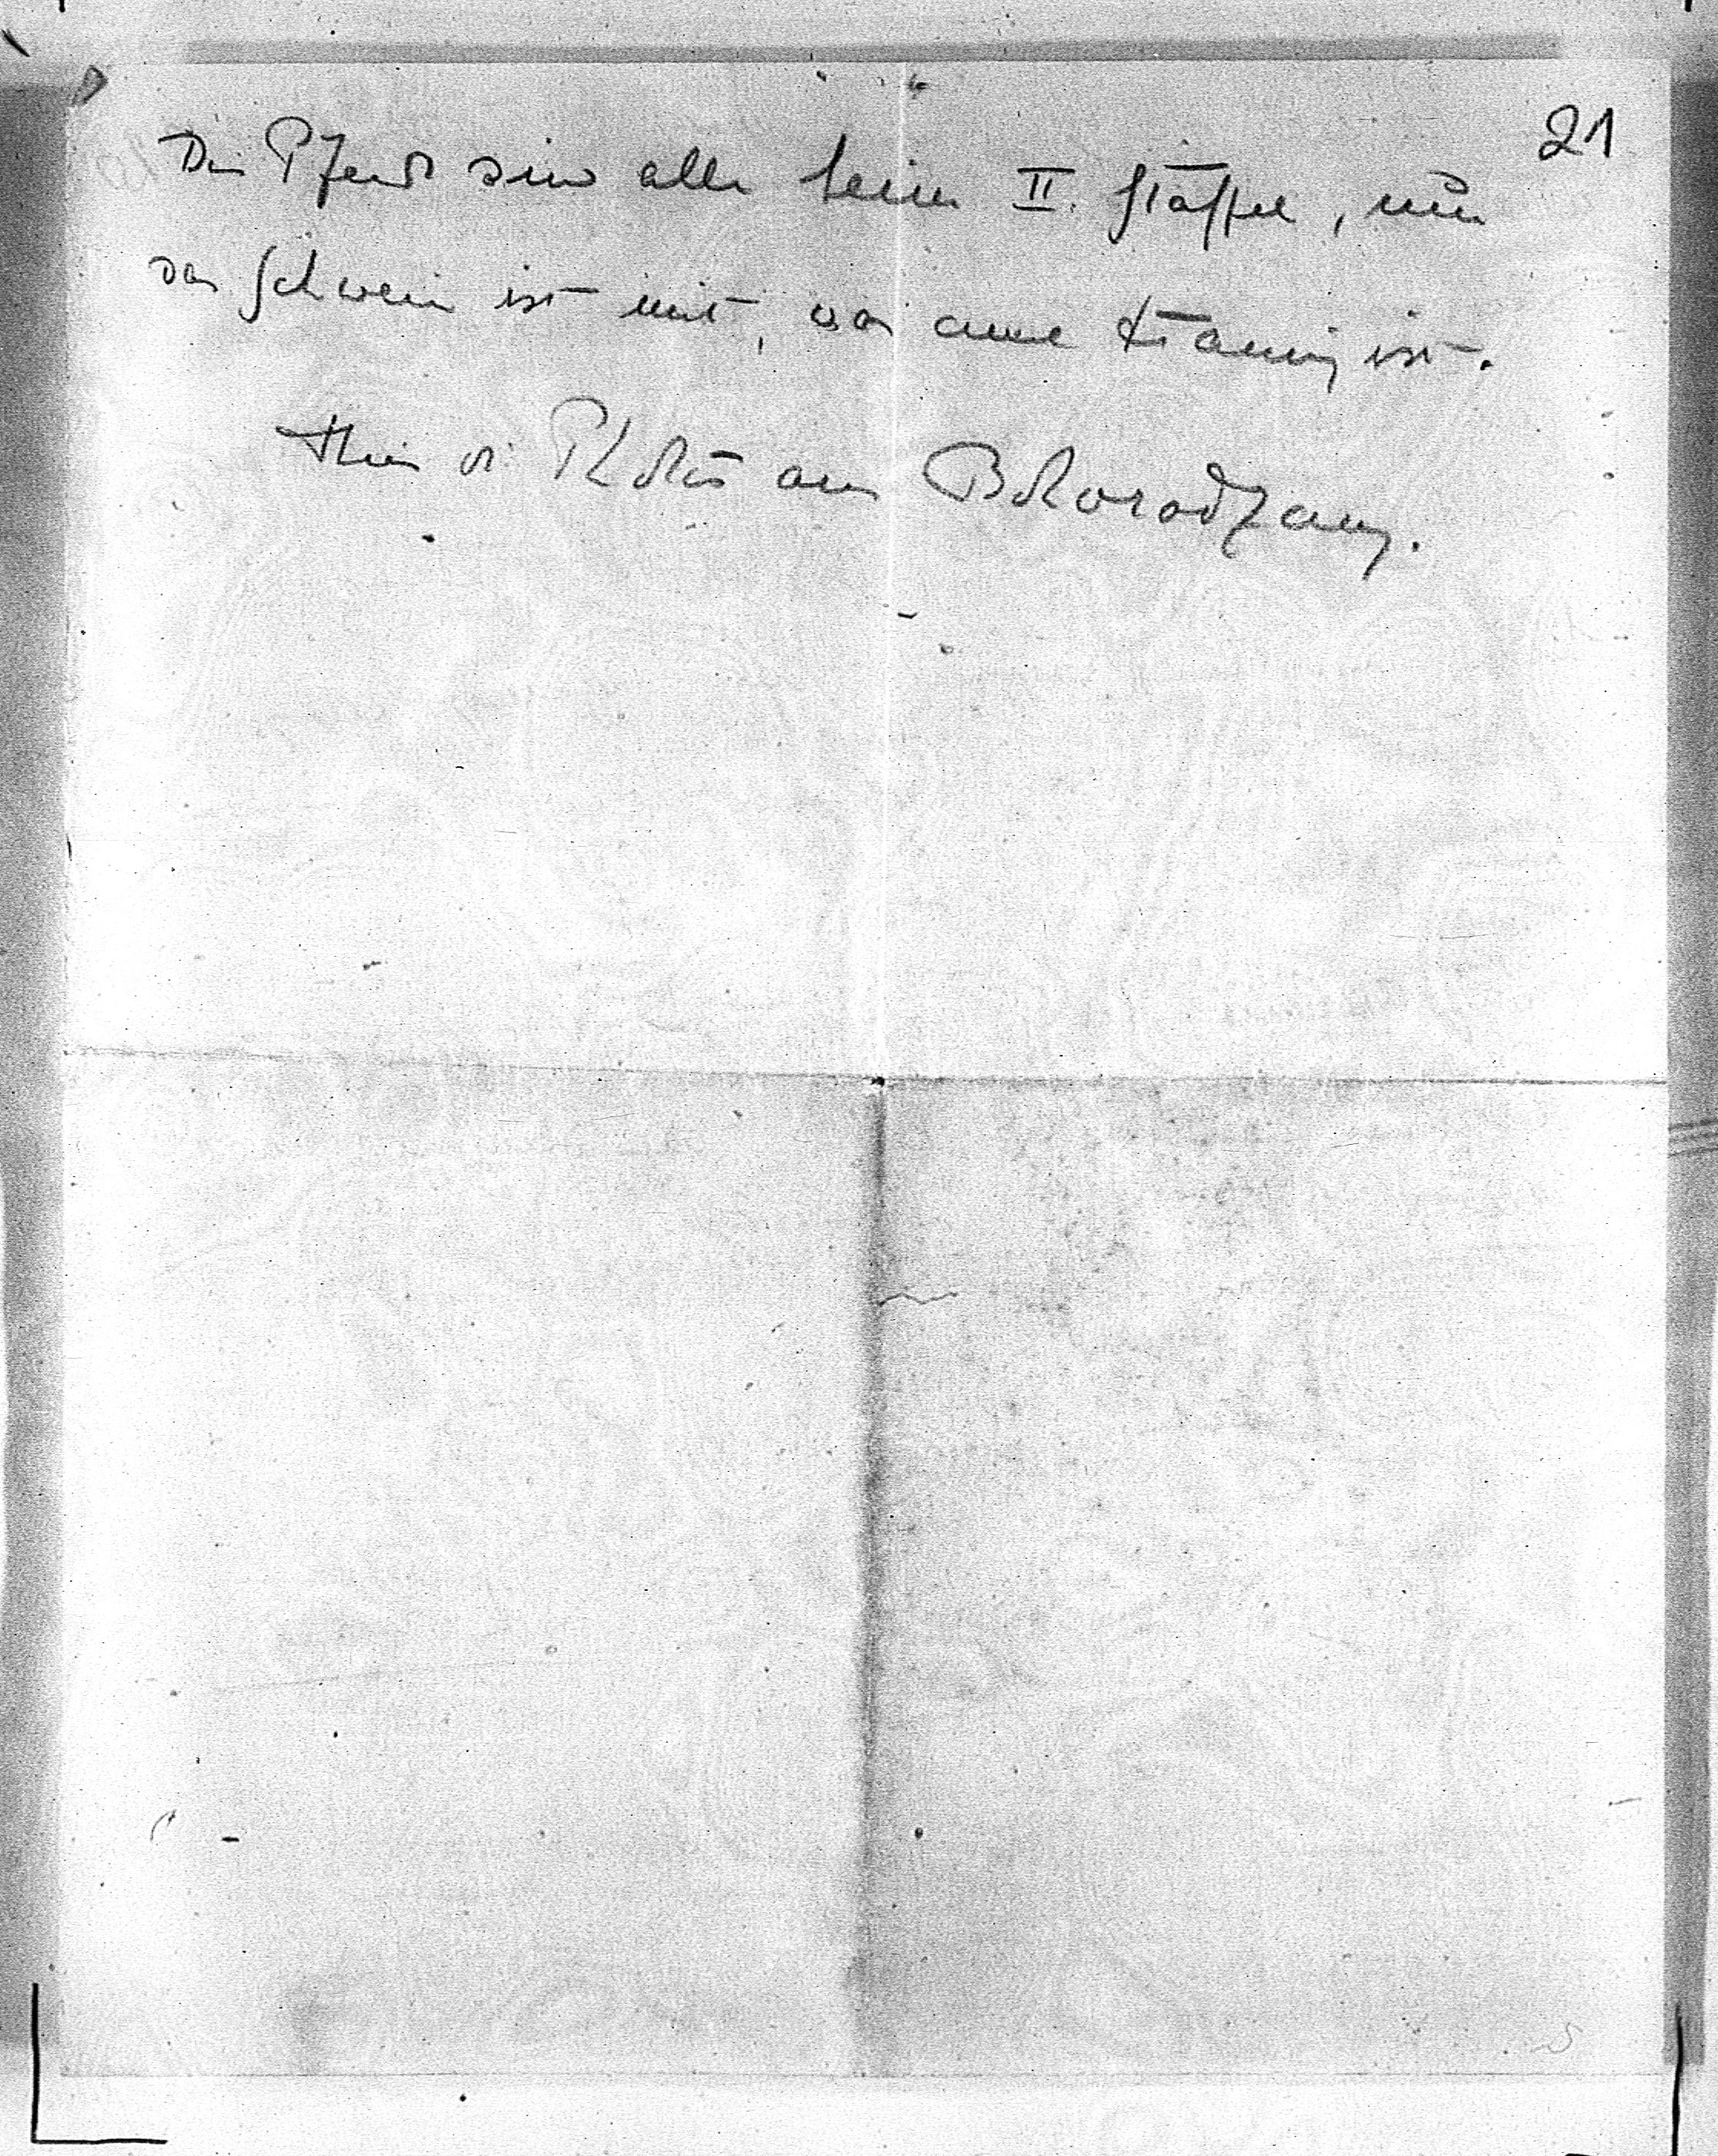 21
Die Pferde sind alle beim II. Staffel, nur
das Schwein ist mit, was auch traurig ist.
Hier die Photos aus Bohorodzany.